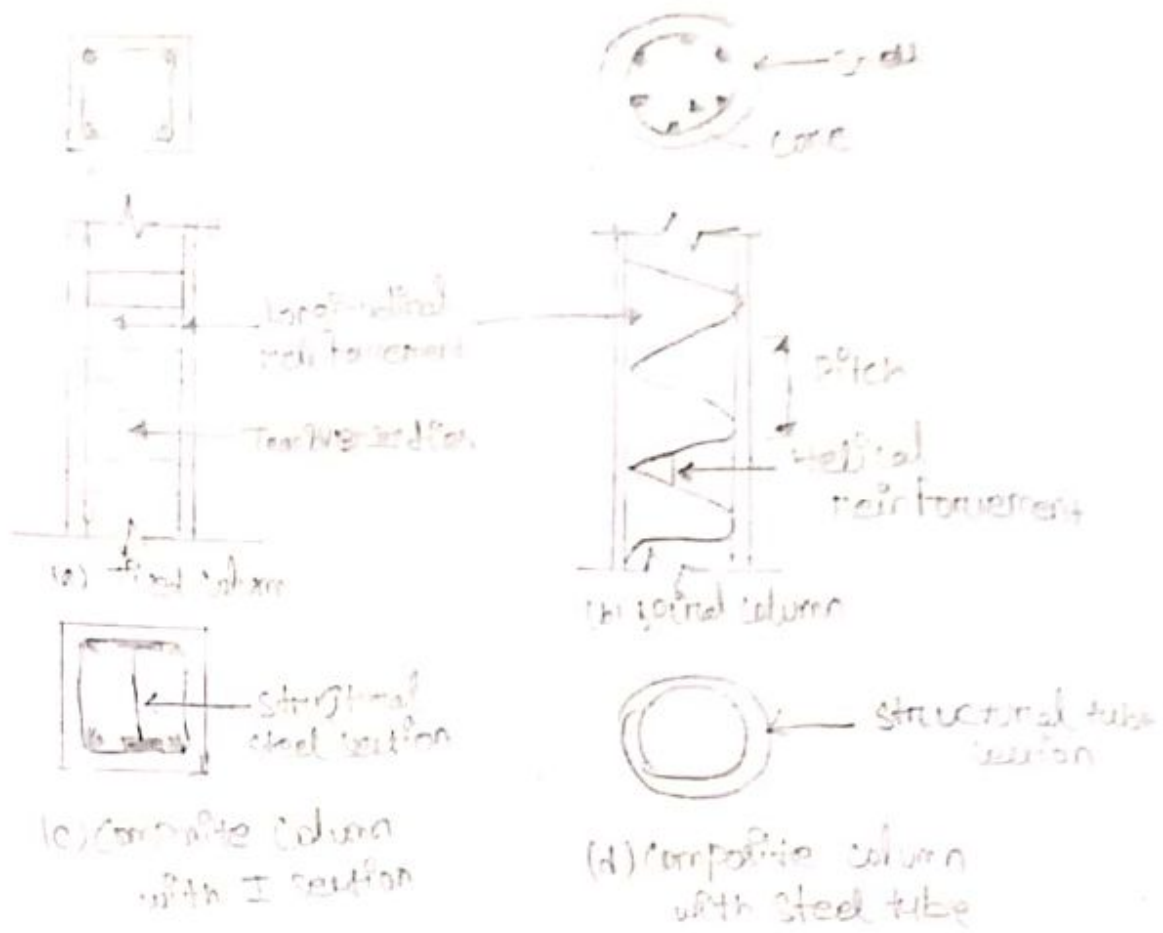 core
Longitudinal
reinforcement
Pitch
Helical
reinforcement
column
(b) spiral column
structural
steel section
structural tube
(c) composite column
with I section
(d) composite column
with steel tube